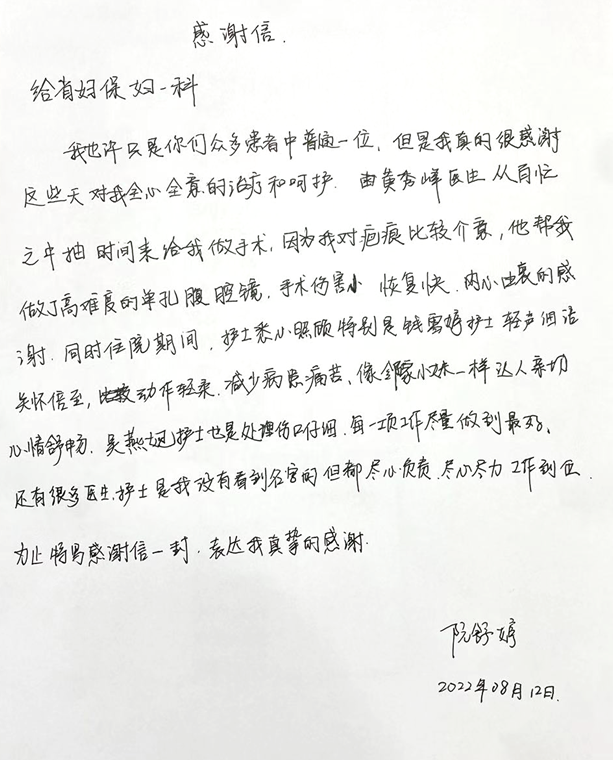 感谢信.
给省妇保妇一科
我也许只是你们众多患者中普通一位,但是我真的很感谢
这些天对我全心全意的治疗和呵护.由黄秀峰医生从百忙
之中抽时间来给我做手术,因为我对疤痕比较介意,他帮我
做了高难度的单孔腹腔镜,手术伤害小 恢复快.内心由衷的感
谢.同时住院期间,护士悉心照顾特别是钱雪婷护士轻声细语
关怀倍至,动作轻柔.减少病患痛苦、像邻家小妹一样让人亲切
心情舒畅.吴燕护士也是处理伤口仔细.每一项工作尽量做到最好、
还有很多医生.护士是我没有看到名字的但都尽心负责.尽心尽力工作到位.
为止特写感谢信一封.表达我真挚的感谢.
阮舒婷
2022年08月12日.